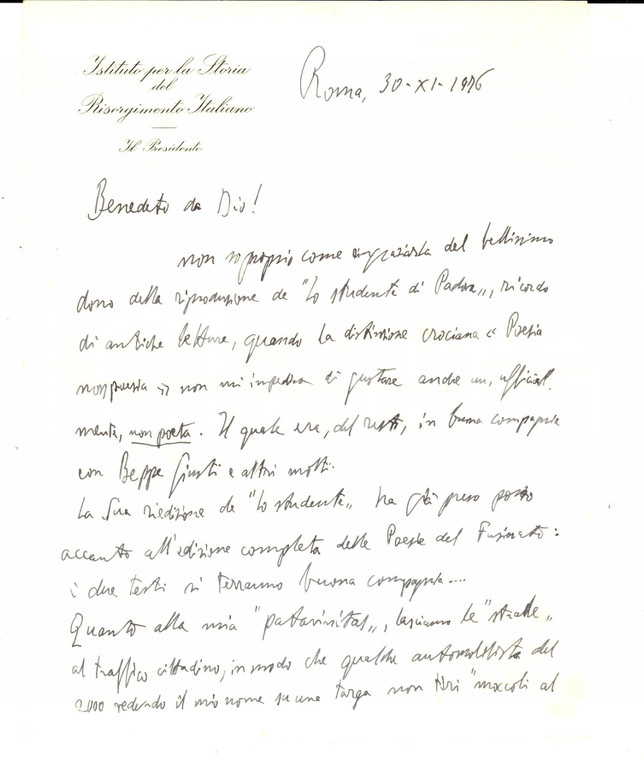 Istituto per la Storia
del
Risorgimento Italiano
Il Presidente
Roma, 30-XI-1976
Benedetto da Dio!
non so proprio come ringraziarla del bellissimo
dono della riproduzione de "Lo studente di Padova", ricordo
di antiche letture, quando la distinzione crociana « Poesia
non poesia » non mi impediva di gustare anche un, ufficial
mente, non poeta. Il quale era, del resto, in buona compagnia
con Beppe Giusti e altri molti.
La Sua riedizione de "Lo studente" ha già preso posto
accanto all'edizione completa delle Poesie del Fusinato:
i due testi si terranno buona compagnia....
Quanto alla mia "patavinitas", lasciamo le "strade"
al traffico cittadino, in modo che qualche automobilista del
2000 vedendo il mio nome su una targa non tiri "moccoli al